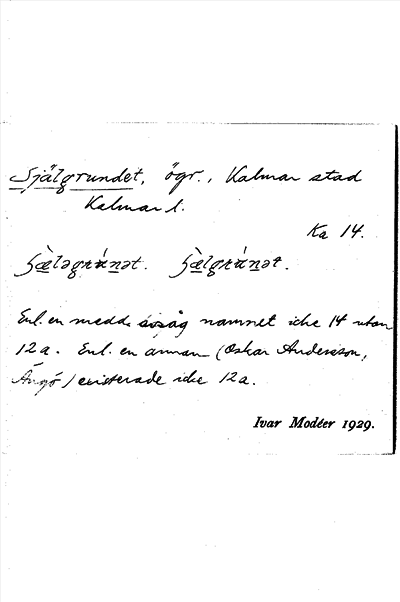 Själgrundet, ögr., Kalmar stad
Kalmar l.
Ka 14.
Enl. en medd. avsåg namnet icke 14 utan
12a. Enl. en annan (Oskar Andersson,
Ängö) existerade icke 12a.
Ivar Modéer 1929.